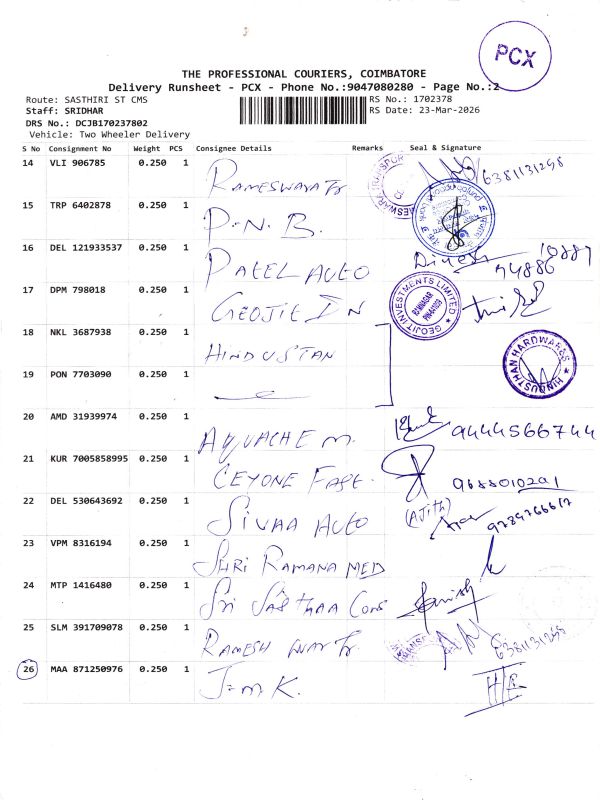 PCX
THE PROFESSIONAL COURIERS, COIMBATORE
Delivery Runsheet - PCX - Phone No.:9047080280 - Page No.:2
Route: SASTHIRI ST CMS RS No.: 1702378
Staff: SRIDHAR RS Date: 23-Mar-2026
DRS No.: DCJB170237802
Vehicle: Two Wheeler Delivery
S No Consignment No Weight PCS Consignee Details Remarks Seal & Signature
14 VLI 906785 0.250 1 RAMESWARA Tr 6381131298
15 TRP 6402878 0.250 1 P.N.B.
16 DEL 121933537 0.250 1 PATEL AUTO Dinesh 94886 10887
17 DPM 798018 0.250 1 GEOJIT IN GEOJIT INVESTMENTS LIMITED RAMNAGAR
18 NKL 3687938 0.250 1 HINDUSTAN HINDUSTHAN HARDWARES
19 PON 7703090 0.250 1
20 AMD 31939974 0.250 1 AQUACHEM. 9444566744
21 KUR 7005858995 0.250 1 CEYONE FAST. 9688010291
22 DEL 530643692 0.250 1 SIVAA AUTO (AJith) 9789766617
23 VPM 8316194 0.250 1 SHRI RAMANA MED
24 MTP 1416480 0.250 1 Sri SASTHAA Cons
25 SLM 391709078 0.250 1 RAMESH WAR Tr. 6381131298
26 MAA 871250976 0.250 1 J.M.K.